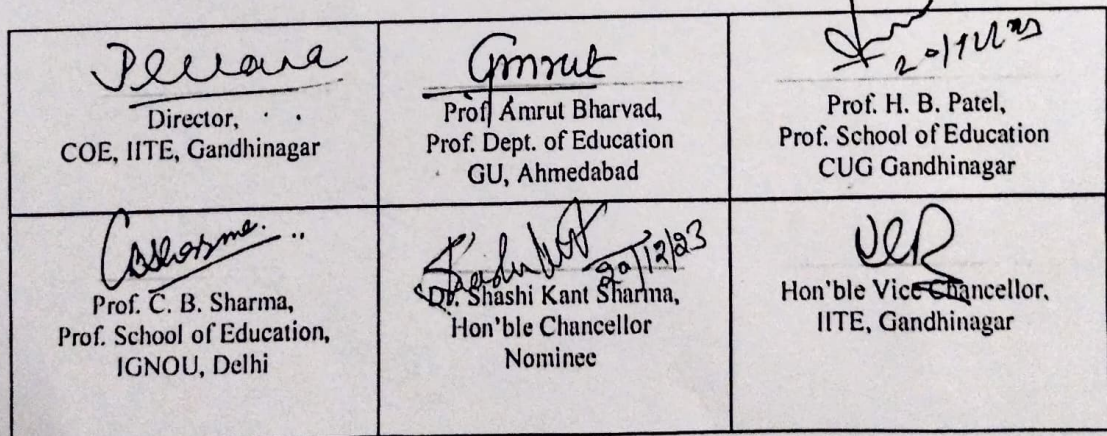 Director,
COE, IITE, Gandhinagar
Gmrut
Prof Amrut Bharvad,
Prof. Dept. of Education
GU, Ahmedabad
Prof. H. B. Patel,
Prof. School of Education
CUG Gandhinagar
Prof. C. B. Sharma,
Prof. School of Education,
IGNOU, Delhi
20/12/23
Dr. Shashi Kant Sharma,
Hon'ble Chancellor
Nominee
Hon'ble Vice Chancellor,
IITE, Gandhinagar